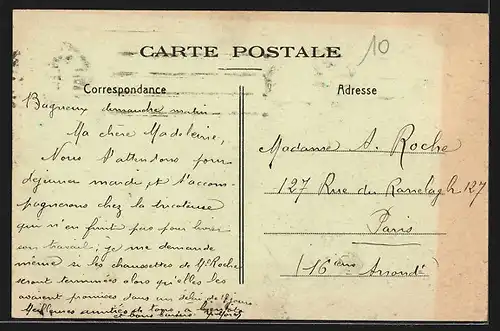 CARTE POSTALE
10
Correspondance
Adresse
Bagneux dimanche matin
Ma chère Madeleine,
Nous t'attendons pour
déjeuner mardi et t'accom-
pagnerons chez la tricoteuse
qui n'en finit pas pour livrer
son travail; je me demande
même si les chaussettes de Mr Roche
seront terminées alors qu'elles les
avaient promises dans un délai de
Meilleures amitiés de tous
et bons baisers
Madame A. Roche
127 Rue du Ranelagh 127
Paris
(16ème Arrondt)